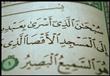 سُبْحَٰنَ الَّذِي أَسْرَىٰ بِعَبْدِهِ
إِلَى الْمَسْجِدِ الْأَقْصَا الَّذِي
السَّمِيعُ الْبَصِيرُ